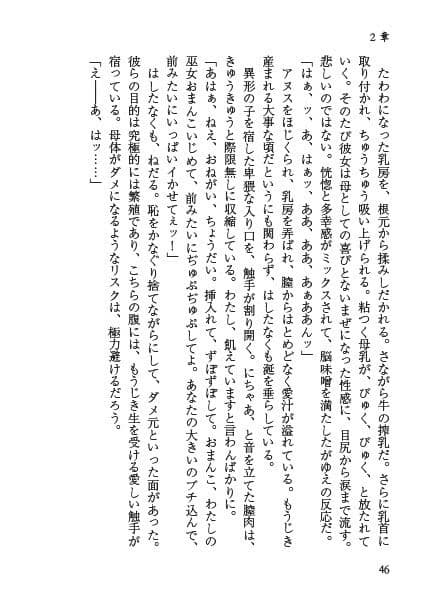 2 章
たわわになった乳房を、根元から揉みしだかれる。さながら牛の搾乳だ。さらに乳首に
取り付かれ、ちゅうちゅう吸い上げられる。粘つく母乳が、びゅく、びゅく、と放たれて
いく。そのたび彼女は母としての喜びとないまぜになった性感に、目尻から涙まで流す。
悲しいのではない。恍惚と多幸感がミックスされて、脳味噌を満たしたがゆえの反応だ。
「はぁ、ッ、あ、はぁッ、ああ、ああ、あぁああんッ」
アヌスをほじくられ、乳房を弄ばれ、膣からはとめどなく愛汁が溢れている。もうじき
産まれる大事な頃だというにも関わらず、はしたなくも涎を垂らしている。
異形の子を宿した卑猥な入り口を、触手が割り開く。にちゃあ、と音を立てた膣肉は、
きゅうきゅうと際限無しに収縮している。わたし、飢えていますと言わんばかりに。
「あはぁ、ねえ、おねがい、ちょうだい。挿入れて、ずぼずぼして。おまんこ、わたしの
巫女おまんこいじめて、前みたいにぢゅぷぢゅぷしてよ。あなたの大きいのブチ込んで、
前みたいにいっぱいイかせてぇッ！」
はしたなくも、ねだる。恥をかなぐり捨てながらにして、ダメ元といった面があった。
彼らの目的は究極的には繁殖であり、こちらの腹には、もうじき生を受ける愛しい触手が
宿っている。母体がダメになるようなリスクは、極力避けるだろう。
「え――あ、はッ……」
46